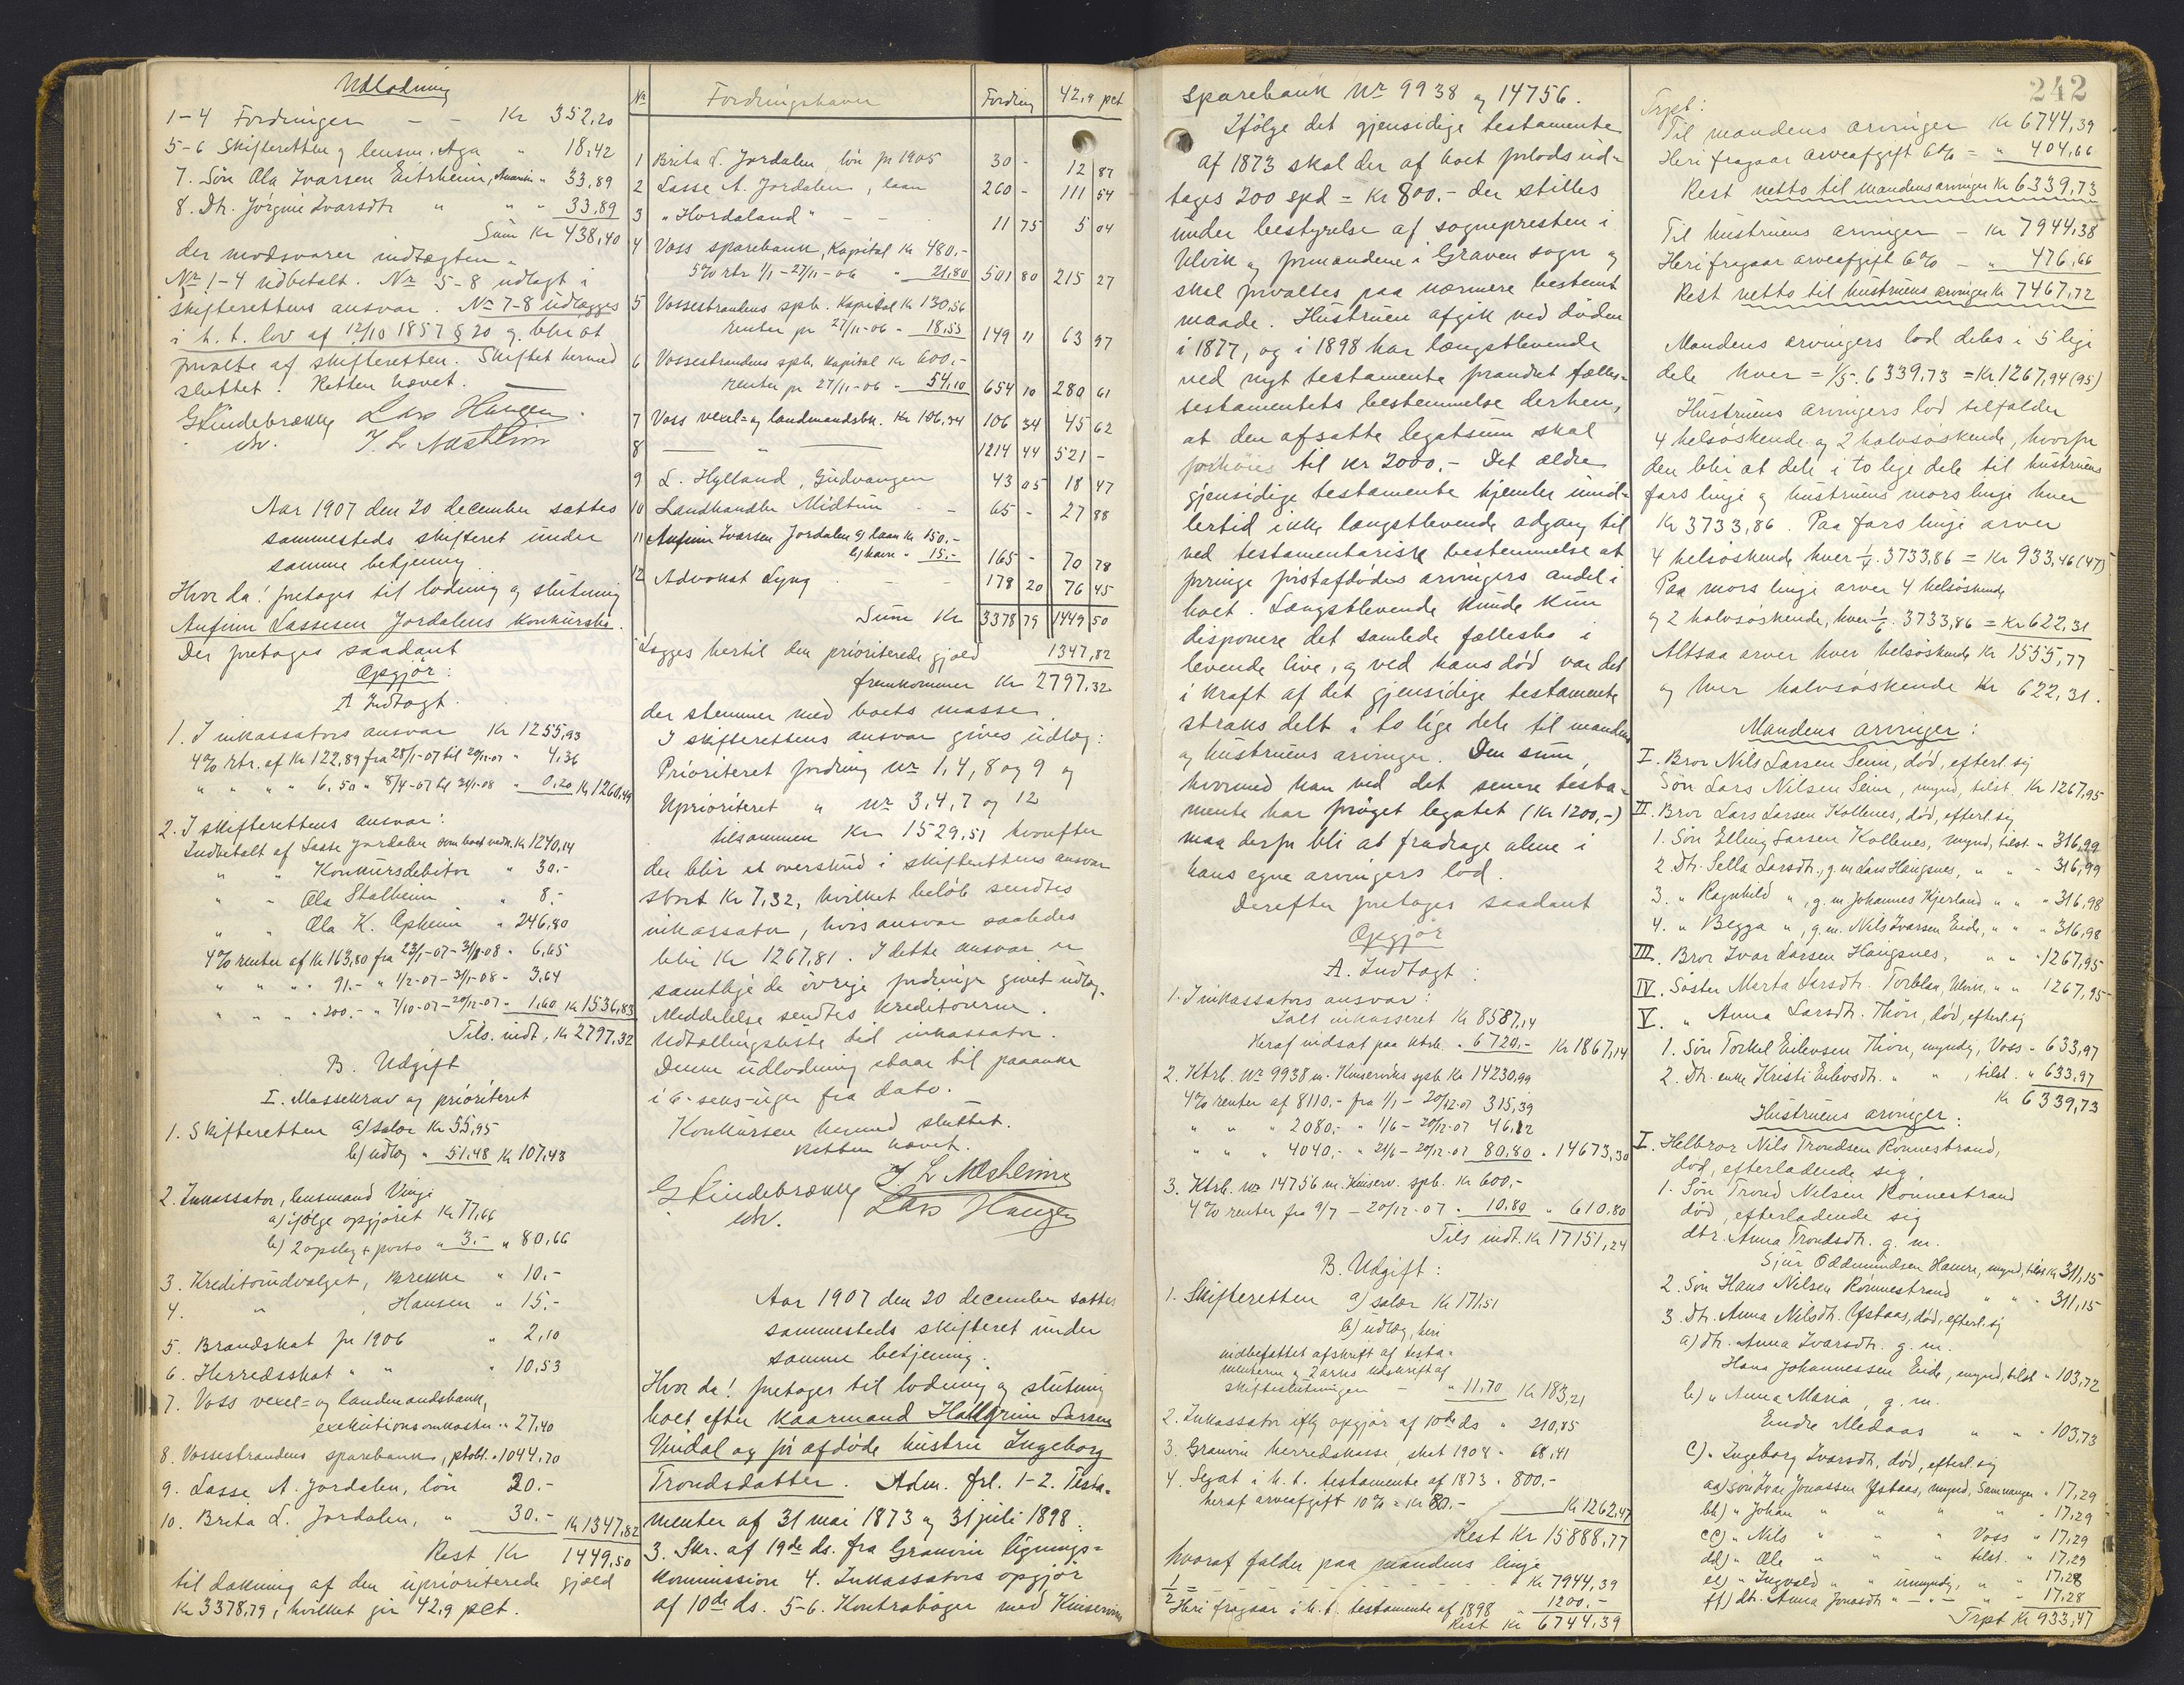 Udlodning
1-4 Fordringer - - Kr 352,20
5-6 Skifteretten og lensm. Aga " 18,42
7. Søn Ola Ivarsen Eitrheim, Amerika " 33,89
8. Dtr. Jørgine Ivarsdtr " " " 33,89
Sum Kr 438,40
der modsvarer indtægten.
No 1-4 udbetalt. No 5-8 udlagt i
skifterettens ansvar. No 7-8 udlægges
i h. t. lov af 12/10 1857 § 20 og blir at
forvalte af skifteretten. Skiftet hermed
sluttet. Retten hævet.
G Kindebrækkg Lars Haugen
cst. I. L. Næsheim
Aar 1907 den 20 december sattes
sammesteds skifteret under
samme betjening.
Hvor da! foretoges til lodning og slutning
Anfinn Lassesen Jordalens konkursbo.
Der foretoges saadant
Opgjør:
A Indtægt.
1. I inkassators ansvar Kr 1255,93
4% rtr. af Kr 122,89 fra 28/1-07 til 20/12-07 " 4,36
" " " " 6,50 " 8/4-07 til 31/1-08 " 0,20 Kr 1260,49
2. I skifterettens ansvar:
Indbetalt af Lasse Jordalen som boet vedr. Kr 1240,14
" " Konkursdebitor " 30.-
" " Ola Stalheim " 8.-
" " Ola K. Opheim " 246,80
4% renter af Kr 163,80 fra 23/1-07-31/1-08 " 6,65
" " " " 91.- " 1/2-07-31/1-08 " 3,64
" " " " 200.- " 7/10-07-20/12-07 " 1,60 Kr 1536,83
Tils. indt. Kr 2797,32
B. Udgift
I. Massekrav og prioriteret
1. Skifteretten a) salær Kr 55,95
b) udlæg " 51,48 Kr 107,43
2. Inkassator, lensmand Vinje
a) ifølge opgjøret Kr 77,66
b) 2 opslag + porto " 3.- " 80,66
3. Kreditorudvalget, Brekke " 10.-
4. " , Hansen " 15.-
5. Brandskat for 1906 " 2,10
6. Herredsskat " " " 10,53
7. Voss vexel= og landmandsbank,
exekutionsomkostn. " 27,40
8. Vossestrandens sparebank, ptobl. " 1044,70
9. Lasse A. Jordalen, løn 20.-
10. Brita L. Jordalen, " 30.- Kr 1347,82
Rest Kr 1449,50
til dækning af den uprioriterede gjæld
Kr 3378,79, hvilket gir 42,9 pct.
No Fordringshaver Fordring 42,9 pct
1 Brita L. Jordalen løn for 1905 30 - 12 87
2 Lasse A. Jordalen, laan 260 - 111 54
3 "Hordaland" - - 11 75 5 04
4 Voss sparebank, Kapital Kr 480.-
5% rtr 1/1-27/11-06 " 21,80 501 80 215 27
5 Vossestrandens spb. Kapital Kr 130,56
renter for 27/11-06 " 18,55 149 11 63 97
6 Vossestrandens spb. Kapital Kr 600.-
renter for 27/11-06 - 54,10 654 10 280 61
7 Voss vexel= og landmandsbk. Kr 106,34 106 34 45 62
8 — " — 1214 44 521 -
9 L. Hylland, Gudvangen 43 05 18 47
10 Landhandler Midtun - - 65 - 27 88
11 Anfinn Ivarsen Jordalen a) laan Kr 150.-
b) havn " 15.- 165 - 70 78
12 Advokat Lyng - - 178 20 76 45
Sum Kr 3378 79 1449 50
Lægges hertil den prioriterede gjæld 1347,82
fremkommer Kr 2797,32
der stemmer med boets masse.
I skifterettens ansvar gives udlæg:
Prioriteret fordring No 1, 4, 8 og 9 og
Uprioriteret " No 3, 4, 7 og 12
tilsammen Kr 1529,51 hvorefter
der blir et overskud i skifterettens ansvar
stort Kr 7,32, hvilket beløb sendtes
inkassator, hvis ansvar saaledes
blir Kr 1267,81. I dette ansvar er
samtlige de øvrige fordringer givet udlæg.
Meddelelse sendtes kreditorerne.
Udtællingsliste til inkassator.
Denne udlodning staar til paaanke
i 6 - seks - uger fra dato.
Konkursen hermed sluttet.
Retten hævet.
G Kindebrækkg I. L. Næsheim
cst. Lars Haugen
Aar 1907 den 20 december sattes
sammesteds skifteret under
samme betjening.
Hvor da! foretoges til lodning og slutning
boet efter Kaarmand Hallgrim Larsen
Vindal og før afdøde hustru Ingeborg
Trondsdatter. Adm. frl. 1-2. Testa-
menter af 31 mai 1873 og 31 juli 1898.
3. Skr. af 19de ds. fra Granvin lignings=
kommission 4. Inkassators opgjør
af 10de ds. 5-6. Kontrabøger med Kinserviks
sparebank No 9938 og 14756.
Ifølge det gjensidige testamente
af 1873 skal der af boet forlods ud-
tages 200 spd = Kr 800.- der stilles
under bestyrelse af sognepresten i
Ulvik og formændene i Graven sogn og
skal forvaltes paa nærmere bestemt
maade. Hustruen afgik ved døden
i 1877, og i 1898 har længstlevende
ved nyt testamente forandret fælles-
testamentets bestemmelse derhen,
at den afsatte legatsum skal
forhøies til Kr 2000.- Det ældre
gjensidige testamente hjemler imid-
lertid ikke længstlevende adgang til
ved testamentarisk bestemmelse at
forringe førstafdødes arvingers andel i
boet. Længstlevende kunde kun
disponere det samlede fællesbo i
levende live, og ved hans død var det
i kraft af det gjensidige testamente
straks delt i to lige dele til mandens
og hustruens arvinger. Den sum,
hvormed han ved det senere testa-
mente har forøget legatet (Kr 1200,-)
maa derfor bli at fradrage alene i
hans egne arvingers lod.
Derefter foretoges saadant
Opgjør
A. Indtægt:
1. I inkassators ansvar:
Ialt inkasseret Kr 8587,14
Heraf indsat paa ktrb. " 6720.- Kr 1867,14
2. Ktrb. No 9938 m. Kinserviks spb. Kr 14230,99
4% renter af 8110.- fra 1/1 - 20/12-07 315,39
" " " 2080.- " 1/6 - 20/12-07 46,12
" " " 4040.- " 21/6 - 20/12-07 80,80 " 14673,30
3. Ktrb. No 14756 m. Kinserv. spb. Kr 600.-
4% renter fra 9/7 - 20/12-07 " 10,80 " 610,80
Tils indt. Kr 17151,24
B. Udgift:
1. Skifteretten a) salær Kr 171,51
b) udlæg, heri
indbefattet afskrift af testa-
menterne og 2 arks udskrift af
skifteslutningen - " 11,70 Kr 183,21
2. Inkassator iflg opgjør af 10de ds " 210,85
3. Granvin herredskasse, skat 1908 " 68,41
4. Legat i h. t. testamente af 1873 " 800.-
heraf arveafgift 10% = Kr 80.- Kr 1262,47
Rest Kr 15888,77
hvoraf falder paa mandens linje
1/2 = - - - - - - Kr 7944,39
Heri fragaar i h. t. testamente af 1898 " 1200.-
Rest Kr 6744,39
242
Trpt:
Til mandens arvinger Kr 6744,39
Heri fragaar arveafgift 6% = " 404,66
Rest netto til mandens arvinger Kr 6339,73
Til hustruens arvinger - Kr 7944,38
Heri fragaar arveafgift 6% - " 476,66
Rest netto til hustruens arvinger Kr 7467,72
Mandens arvingers lod deles i 5 lige
dele hver = 1/5. 6339,73 = Kr. 1267,94 (95)
Hustruens arvingers lod tilfalder
4 helsøskende og 2 halvsøskende, hvorfor
den blir at dele i to lige dele til hustruens
fars linje og hustruens mors linje hver
Kr 3733,86. Paa fars linje arver
4 helsøskende hver 1/4. 3733,86 = Kr 933,46 (47)
Paa mors linje arver 4 helsøskende
og 2 halvsøskende, hver 1/6. 3733,86 = Kr 622,31
Altsaa arver hver helsøskende Kr 1555,77
og hver halvsøskende Kr 622,31.
Mandens arvinger:
I. Bror Nils Larsen Seim, død, efterl. sig
Søn Lars Nilsen Seim, mynd, tilst, Kr 1267,95
II. Bror Lars Larsen Kollenes, død, efterl. sig
1. Søn Elling Larsen Kollenes, mynd, tilst. " 316,99
2 Dtr. Sella Larsdtr., g. m Lars Haugsnes, " " " 316,99
3. " Ragnhild " , g. m Johannes Kjerland " " " 316,98
4. " Begga " , g. m. Nils Ivarsen Eide, " " " 316,98
III. Bror Ivar Larsen Haugsnes, " " " 1267,95
IV. Søster Marta Larsdtr. Torblaa, Ulvik, " " 1267,95
V. " Anna Larsdtr. Thön, død, efterl. sig
1. Søn Torkel Eilevsen Thön, myndig, Voss - 633,97
2. Dtr. enke Kristi Eilevsdtr. " " , tilst. " 633,97
Kr 6339,73
Hustruens arvinger:
I. Helbror Nils Trondsen Rønnestrand,
død, efterladende sig
1. Søn Trond Nilsen Rønnestrand
død, efterladende sig
dtr. Anna Trondsdtr. g. m.
Sjur Oddmundsen Hamre, mynd, tilst Kr 311,15
2. Søn Hans Nilsen Rønnestrand " " " 311,15
3. Dtr. Anna Nilsdtr. Ystaas, død, efterl. sig
a) dtr. Anna Ivarsdtr. g. m.
Hans Johannessen Eide, mynd, tilst " 103,72
b) " Anna Maria, g. m.
Eindre Medaas " " " 103,73
c) " Ingeborg Ivarsdtr, død, efterl. sig
aa) søn Ivar Jonassen Ystaas, mynd, Samnanger " 17,29
bb) " Johan " " " " " 17,29
cc) " Nils " " " Voss " 17,29
dd) " Ole " " " tilst. " 17,29
ee) " Ingvald " " umyndig, " " 17,28
ff) dtr. Anna Jonasdtr " - " - " - 17,28
Trpt Kr 933,47